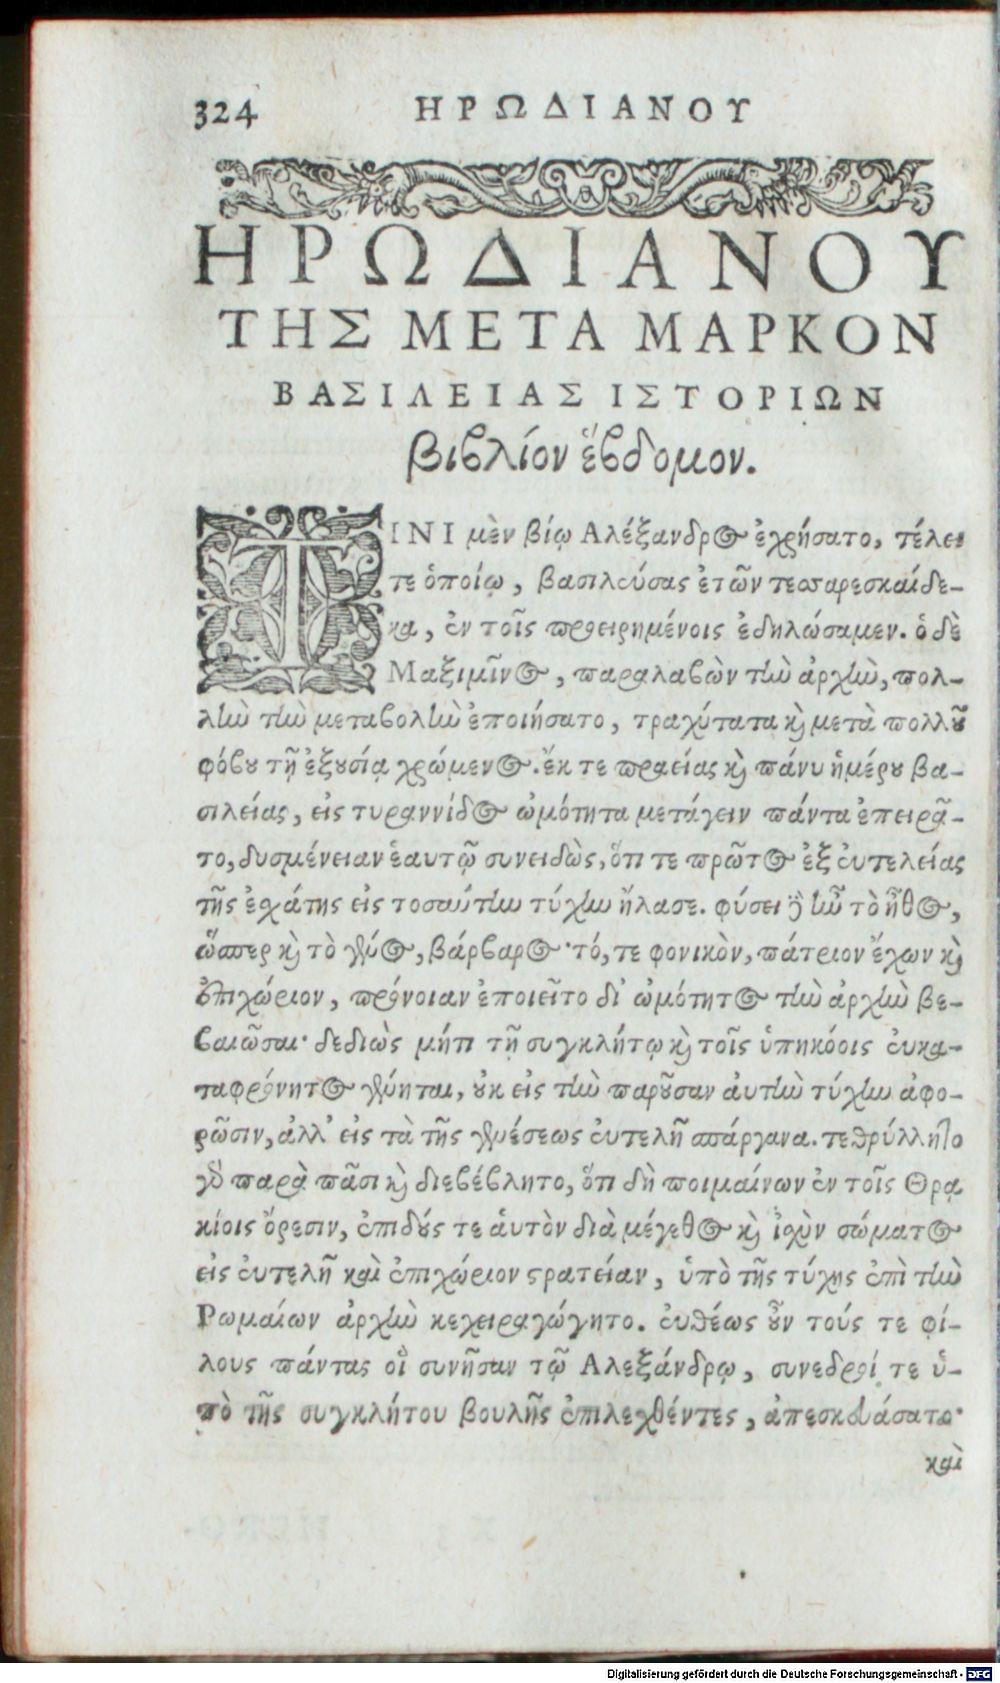 324 ΗΡΩΔΙΑΝΟΥ
ΗΡΩΔΙΑΝΟΥ
ΤΗΣ ΜΕΤΑ ΜΑΡΚΟΝ
ΒΑΣΙΛΕΙΑΣ ΙΣΤΟΡΙΩΝ
βιβλίον ἕβδομον.
ΤΙΝΙ μὲν βίῳ Αλέξανδρος ἐχρήσατο, τέλει
τε ὁποίῳ, βασιλεύσας ἐτῶν τεσσαρεσκαίδε-
κα, ἐν τοῖς προειρημένοις ἐδηλώσαμεν. ὁ δὲ
Μαξιμῖνος, παραλαβὼν τὴν ἀρχὴν, πολ-
λὴν τὴν μεταβολὴν ἐποιήσατο, τραχύτατα καὶ μετὰ πολλοῦ
φόβου τῇ ἐξουσίᾳ χρώμενος. ἔκ τε πραείας καὶ πάνυ ἡμέρου βα-
σιλείας, εἰς τυραννίδος ὠμότητα μετάγειν πάντα ἐπειρᾶ-
το, δυσμένειαν ἑαυτῷ συνειδὼς, ὅτι τε πρῶτος ἐξ εὐτελείας
τῆς ἐσχάτης εἰς τοσαύτην τύχην ἤλασε. φύσει δὲ ἦν τὸ ἦθος,
ὥσπερ καὶ τὸ γένος, βάρβαρος· τό, τε φονικὸν, πάτριον ἔχων καὶ
ἐπιχώριον, πρόνοιαν ἐποιεῖτο δι' ὠμότητος τὴν ἀρχὴν βε-
βαιῶσαι· δεδιὼς μήτι τῇ συγκλήτῳ καὶ τοῖς ὑπηκόοις εὐκα-
ταφρόνητος γένηται, οὐκ εἰς τὴν παροῦσαν αὐτὴν τύχην ἀφο-
ρῶσιν, ἀλλ' εἰς τὰ τῆς γενέσεως εὐτελῆ σπάργανα. τεθρύλλητο
γὰρ παρὰ πᾶσι καὶ διεβέβλητο, ὅτι δὴ ποιμαίνων ἐν τοῖς Θρᾳ
κίοις ὄρεσιν, ἐπιδούς τε ἑαυτὸν διὰ μέγεθος καὶ ἰσχὺν σώματος
εἰς εὐτελῆ καὶ ἐπιχώριον στρατείαν, ὑπὸ τῆς τύχης ἐπὶ τὴν
Ρωμαίων ἀρχὴν κεχειραγώγητο. εὐθέως οὖν τούς τε φί-
λους πάντας οἳ συνῆσαν τῷ Αλεξάνδρῳ, συνεδροί τε ὑ-
πὸ τῆς συγκλήτου βουλῆς ἐπιλεχθέντες, ἀπεσκευάσατο·
καὶ
Digitalisierung gefördert durch die Deutsche Forschungsgemeinschaft - DFG